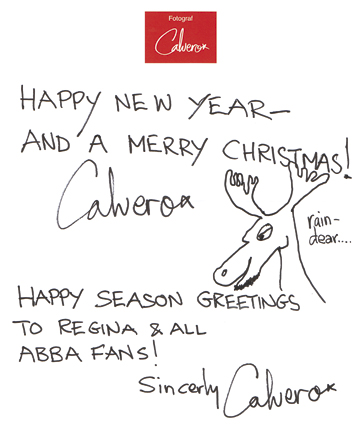 Fotograf
Calvero*
HAPPY NEW YEAR—
AND A MERRY CHRISTMAS!
Calvero*
rain-
dear....
HAPPY SEASON GREETINGS
TO REGINA & ALL
ABBA FANS!
Sincerly Calvero*